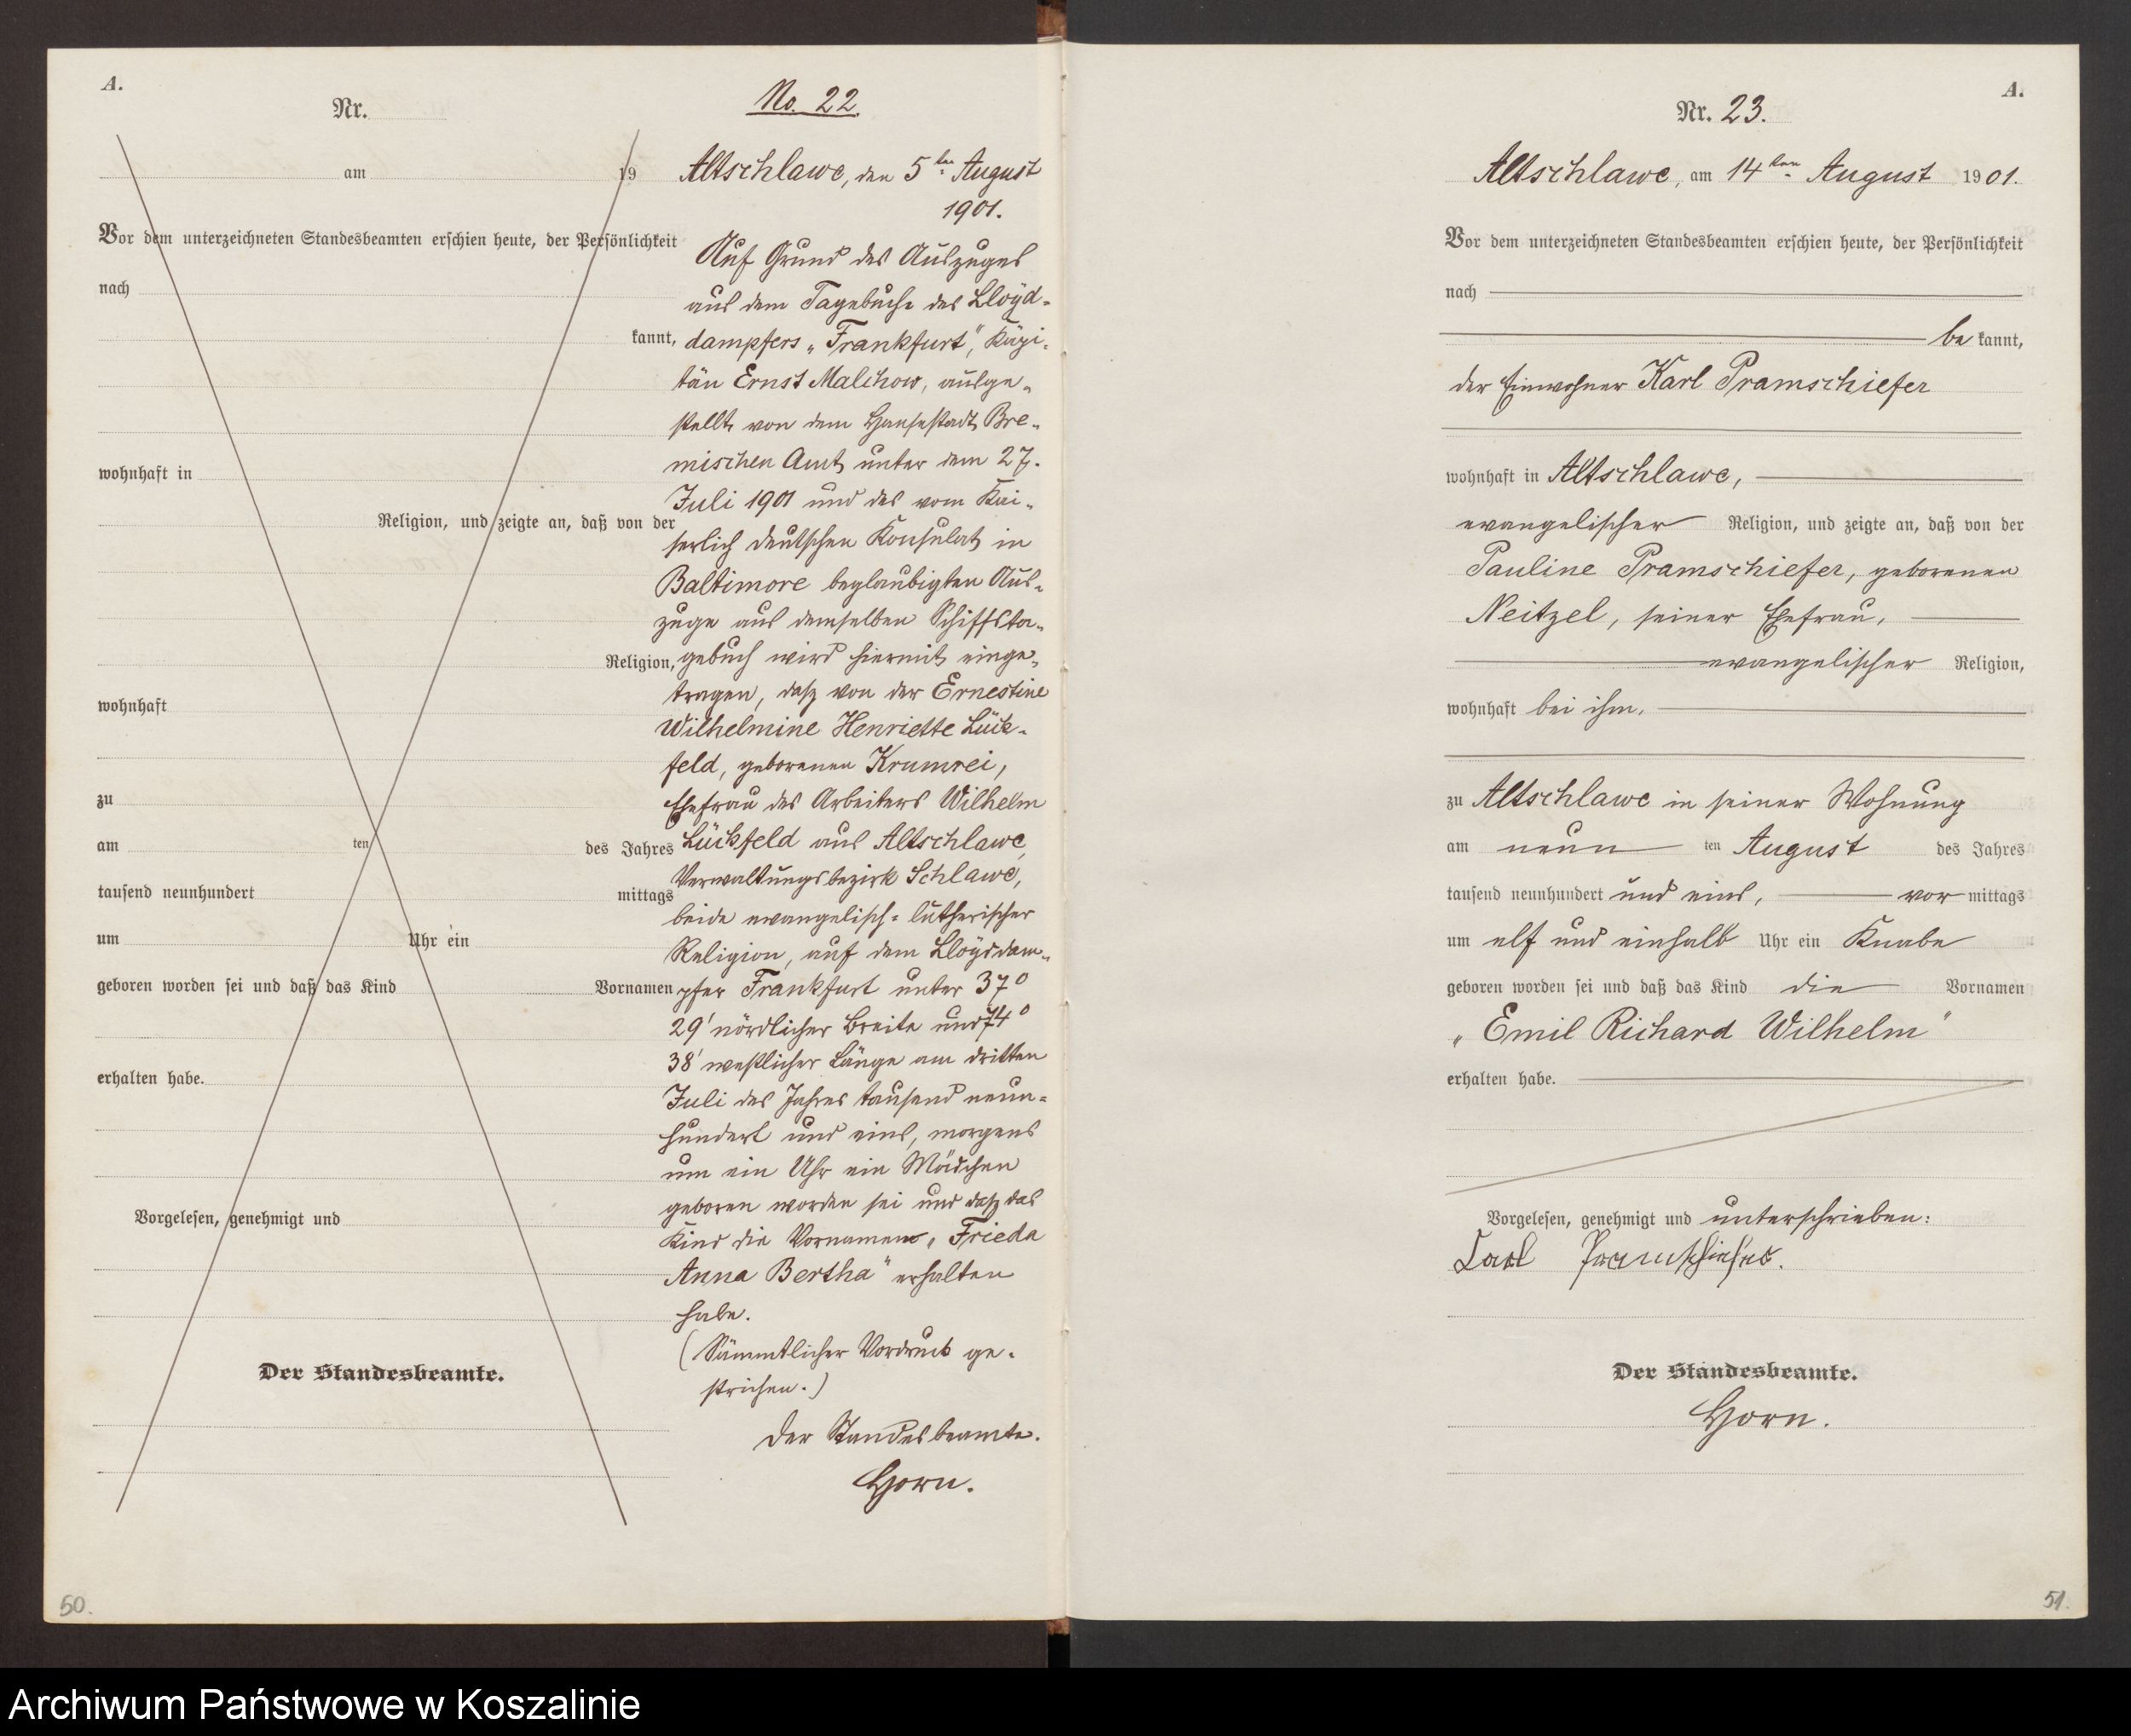 A.
Nr.
am 19
Vor dem unterzeichneten Standesbeamten erschien heute, der Persönlichkeit
nach
kannt,
wohnhaft in
Religion, und zeigte an, daß von der
Religion,
wohnhaft
zu
am ten des Jahres
tausend neunhundert mittags
um Uhr ein
geboren worden sei und daß das Kind Vornamen
erhalten habe.
Vorgelesen, genehmigt und
Der Standesbeamte.
50.
No. 22
Altschlawe, den 5ten August
1901.
Auf Grund des Auszuges
aus dem Tagebuche des Lloyd-
dampfers „Frankfurt", Kapi-
tän Ernst Malchow, ausge-
stellt von dem Hansestadt Bre-
mischen Amt unter dem 27.
Juli 1901 und des vom Kai-
serlich deutschen Konsulat in
Baltimore beglaubigten Aus-
zuge aus demselben Schiffsta-
gebuch wird hiermit einge-
tragen, daß von der Ernestine
Wilhelmine Henriette Lück-
feld, geborenen Krumrei,
Ehefrau des Arbeiters Wilhelm
Lückfeld aus Altschlawe,
Verwaltungsbezirk Schlawe,
beide evangelisch-lutherischer
Religion, auf dem Lloyddam-
pfer Frankfurt unter 37°
29' nördlicher Breite und 74°
38' westlicher Länge am dritten
Juli des Jahres tausend neun-
hundert und eins, morgens
um ein Uhr ein Mädchen
geboren worden sei und daß das
Kind die Vornamen „Frieda
Anna Bertha" erhalten
habe.
(Sämmtlicher Vordruck ge-
strichen.)
Der Standesbeamte.
Horn.
A.
Nr. 23.
Altschlawe, am 14ten August 1901.
Vor dem unterzeichneten Standesbeamten erschien heute, der Persönlichkeit
nach
be kannt,
der Einwohner Karl Pramschiefer
wohnhaft in Altschlawe,
evangelischer Religion, und zeigte an, daß von der
Pauline Pramschiefer, geborenen
Neitzel, seiner Ehefrau,
evangelischer Religion,
wohnhaft bei ihm,
zu Altschlawe in seiner Wohnung
am neun ten August des Jahres
tausend neunhundert und eins, vor mittags
um elf und einhalb Uhr ein Knabe
geboren worden sei und daß das Kind die Vornamen
„Emil Richard Wilhelm"
erhalten habe.
Vorgelesen, genehmigt und unterschrieben:
Carl Pramschiefer.
Der Standesbeamte.
Horn.
51.
Archiwum Państwowe w Koszalinie